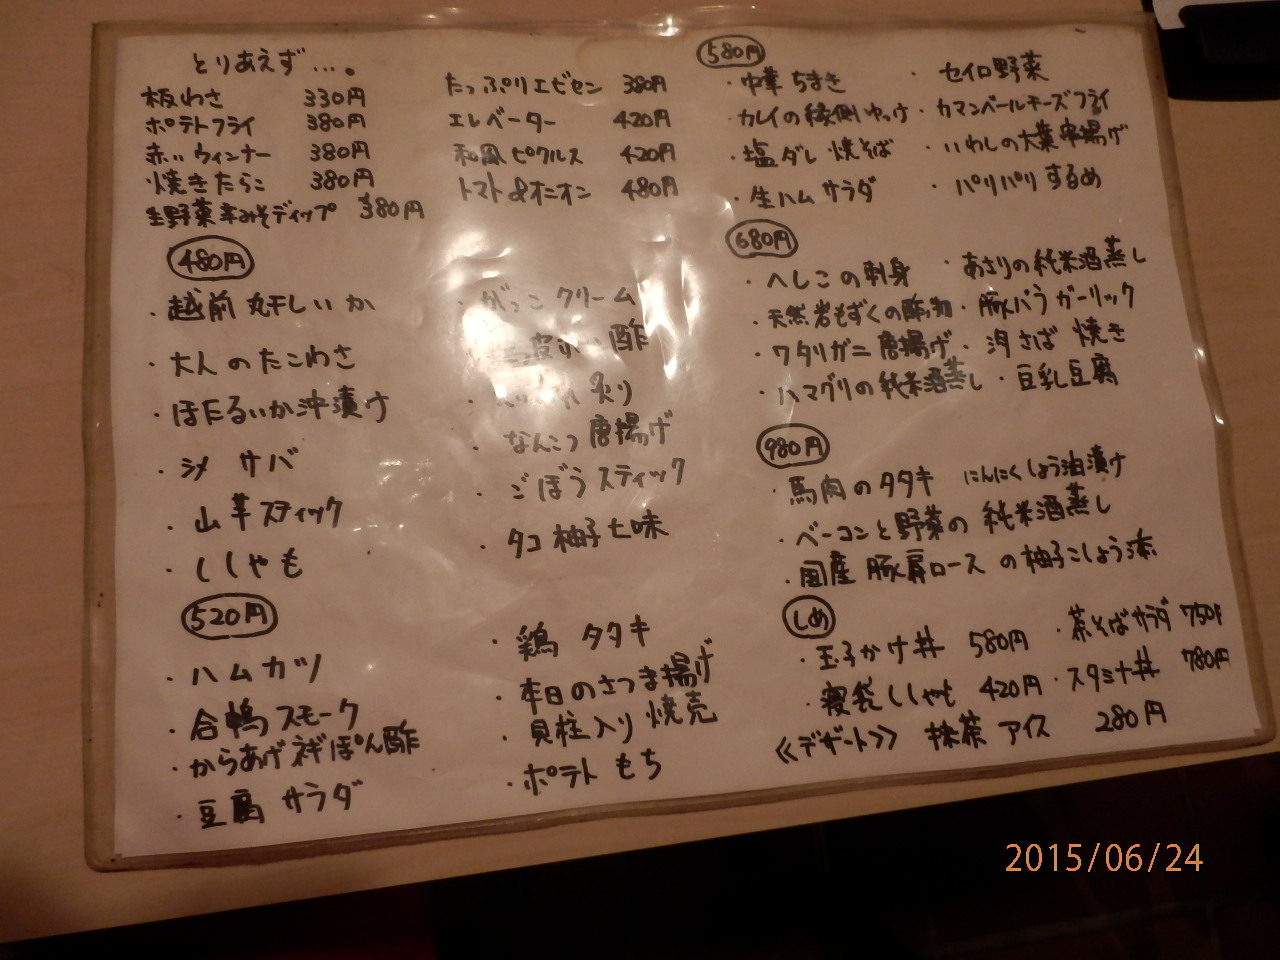 とりあえず…。
板わさ 330円
ポテトフライ 380円
赤いウィンナー 380円
焼きたらこ 380円
生野菜辛みそディップ 380円
たっぷりエビセン 380円
エレベーター 420円
和風ピクルス 420円
トマト&オニオン 480円
480円
・越前丸干しいか
・大人のたこわさ
・ほたるいか沖漬け
・シメサバ
・山芋スティック
・ししゃも
・がっこクリーム
酢
炙り
・なんこつ唐揚げ
・ごぼうスティック
・タコ柚子七味
520円
・ハムカツ
・合鴨スモーク
・からあげネギぽん酢
・豆腐サラダ
・鶏タタキ
・本日のさつま揚げ
・貝柱入り焼売
・ポテトもち
580円
・中華ちまき
・カレイの縁側ゆっけ
・塩ダレ焼そば
・生ハムサラダ
・セイロ野菜
・カマンベールチーズフライ
・いわしの大葉串揚げ
・パリパリするめ
680円
・へしこの刺身
・天然岩もずくの酢物
・ワタリガニ唐揚げ
・ハマグリの純米酒蒸し
・あさりの純米酒蒸し
・豚バラガーリック
・さば焼き
・豆乳豆腐
980円
・馬肉のタタキ にんにくしょう油漬け
・ベーコンと野菜の純米酒蒸し
・国産豚肩ロースの柚子こしょう添
しめ
・玉子かけ丼 580円
・寝袋ししゃも 420円
・茶そばサラダ 750円
・スタミナ丼 780円
≪デザート≫ 抹茶アイス 280円
2015/06/24